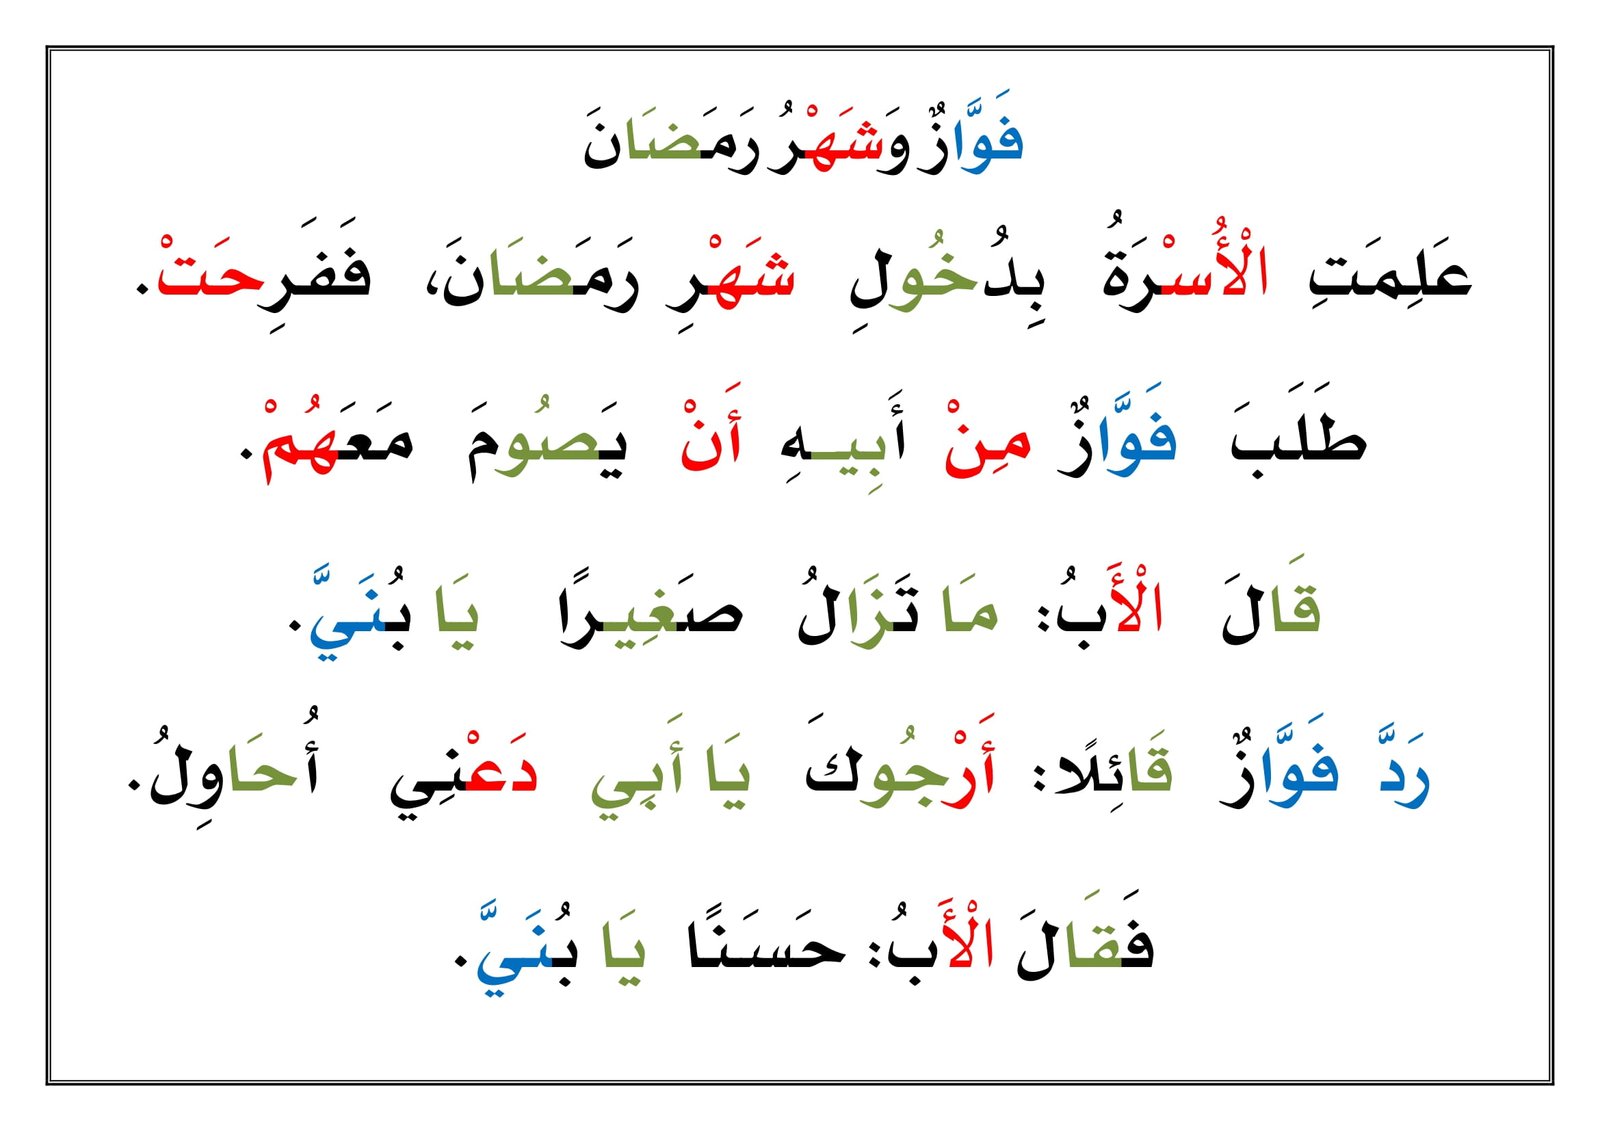 فَوَّازٌ وَشَهْرُ رَمَضَانَ
عَلِمَتِ الْأُسْرَةُ بِدُخُولِ شَهْرِ رَمَضَانَ، فَفَرِحَتْ.
طَلَبَ فَوَّازٌ مِنْ أَبِيـهِ أَنْ يَصُومَ مَعَهُمْ.
قَالَ الْأَبُ: مَا تَزَالُ صَغِيرًا يَا بُنَيَّ.
رَدَّ فَوَّازٌ قَائِلًا: أَرْجُوكَ يَا أَبِي دَعْنِي أُحَاوِلُ.
فَقَالَ الْأَبُ: حَسَنًا يَا بُنَيَّ.